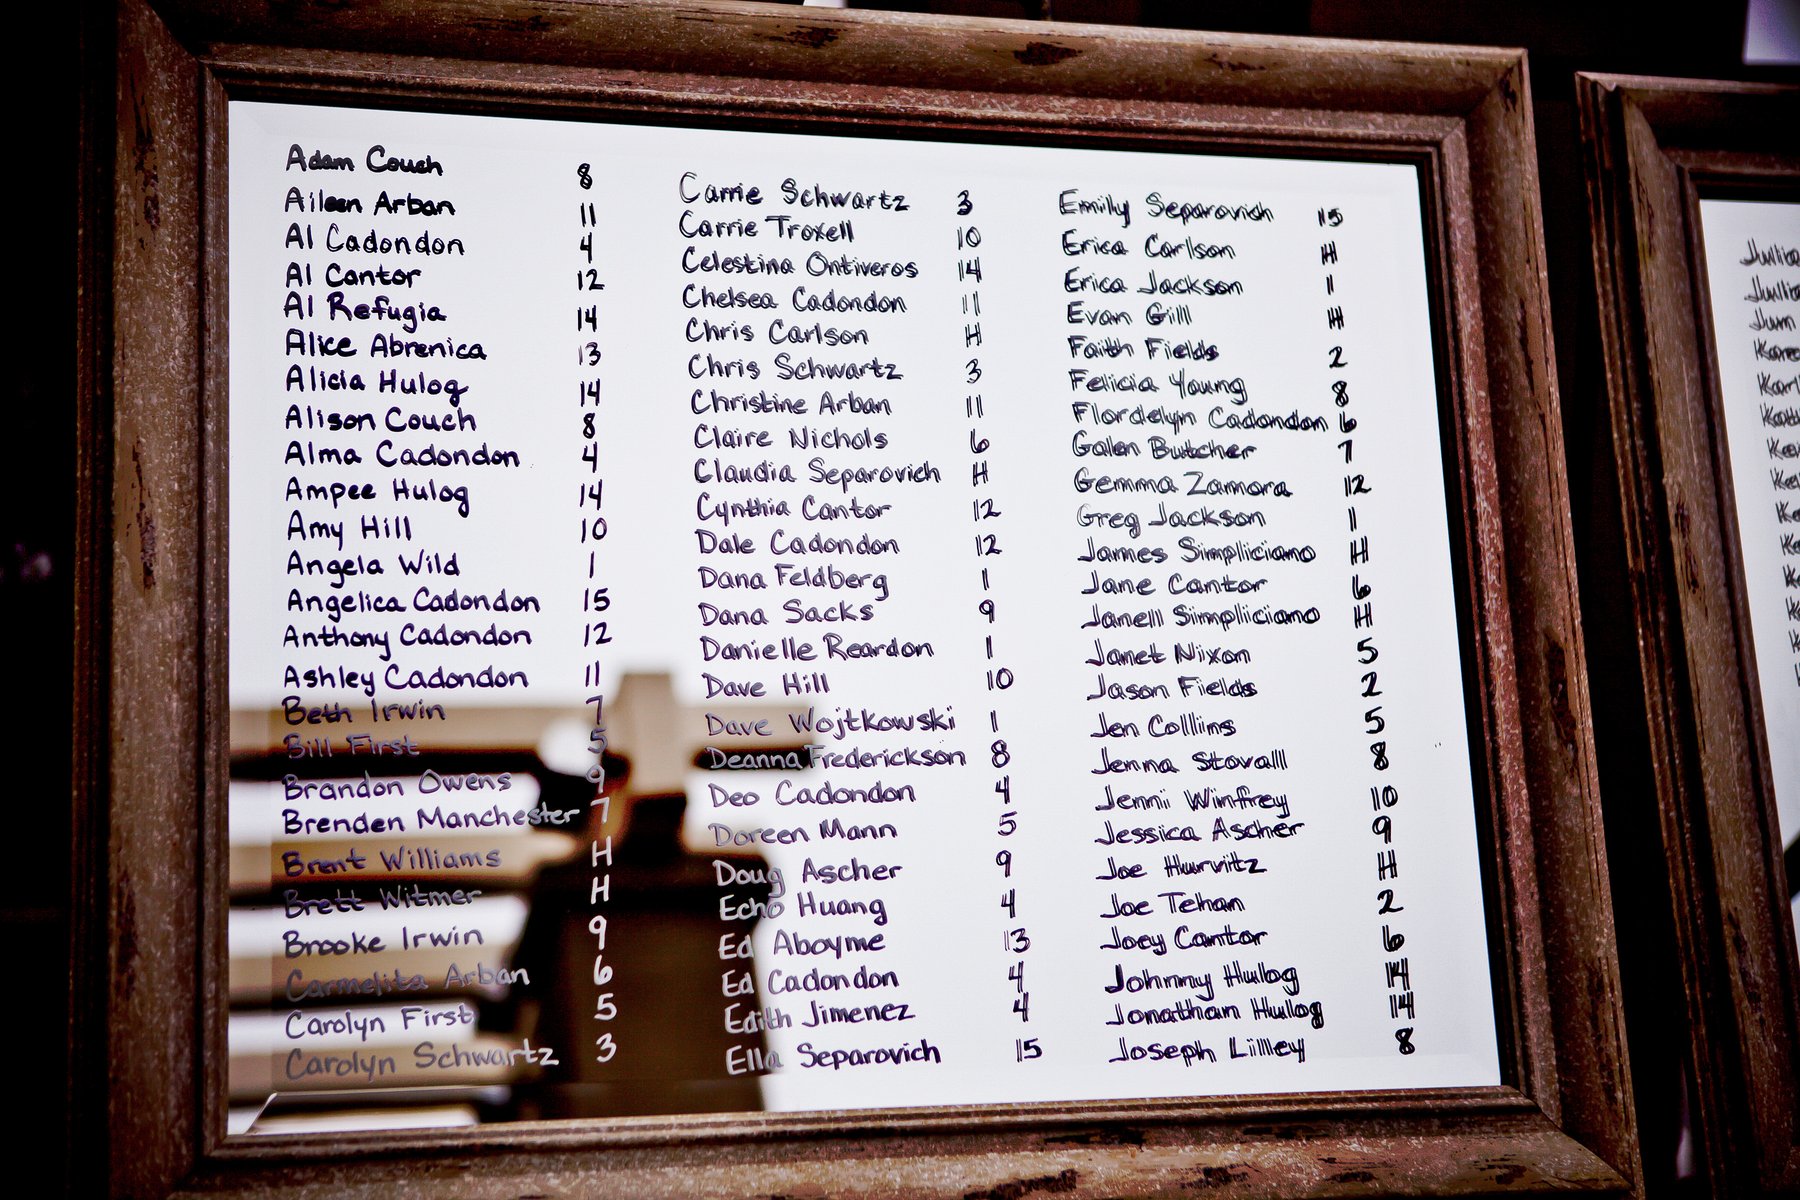 Adam Couch 8
Aileen Arban 11
Al Cadondon 4
Al Cantor 12
Al Refugia 14
Alice Abrenica 13
Alicia Hulog 14
Alison Couch 8
Alma Cadondon 4
Ampee Hulog 14
Amy Hill 10
Angela Wild 1
Angelica Cadondon 15
Anthony Cadondon 12
Ashley Cadondon 11
Beth Irwin 7
Bill First 5
Brandon Owens 9
Brenden Manchester 7
Brent Williams H
Brett Witmer H
Brooke Irwin 9
Carmelita Arban 6
Carolyn First 5
Carolyn Schwartz 3
Carrie Schwartz 3
Carrie Troxell 10
Celestina Ontiveros 14
Chelsea Cadondon 11
Chris Carlson H
Chris Schwartz 3
Christine Arban 11
Claire Nichols 6
Claudia Separovich H
Cynthia Cantor 12
Dale Cadondon 12
Dana Feldberg 1
Dana Sacks 9
Danielle Reardon 1
Dave Hill 10
Dave Wojtkowski 1
Deanna Frederickson 8
Deo Cadondon 4
Doreen Mann 5
Doug Ascher 9
Echo Huang 4
Ed Aboyme 13
Ed Cadondon 4
Edith Jimenez 4
Ella Separovich 15
Emily Separovich 15
Erica Carlson H
Erica Jackson 1
Evan Gill H
Faith Fields 2
Felicia Young 8
Flordelyn Cadondon 6
Galen Butcher 7
Gemma Zamora 12
Greg Jackson 1
James Simpliciano H
Jane Cantor 6
Janell Simpliciano H
Janet Nixon 5
Jason Fields 2
Jen Collins 5
Jenna Stovall 8
Jenni Winfrey 10
Jessica Ascher 9
Joe Hurvitz H
Joe Tehan 2
Joey Cantor 6
Johnny Hulog 14
Jonathan Hulog 14
Joseph Lilley 8